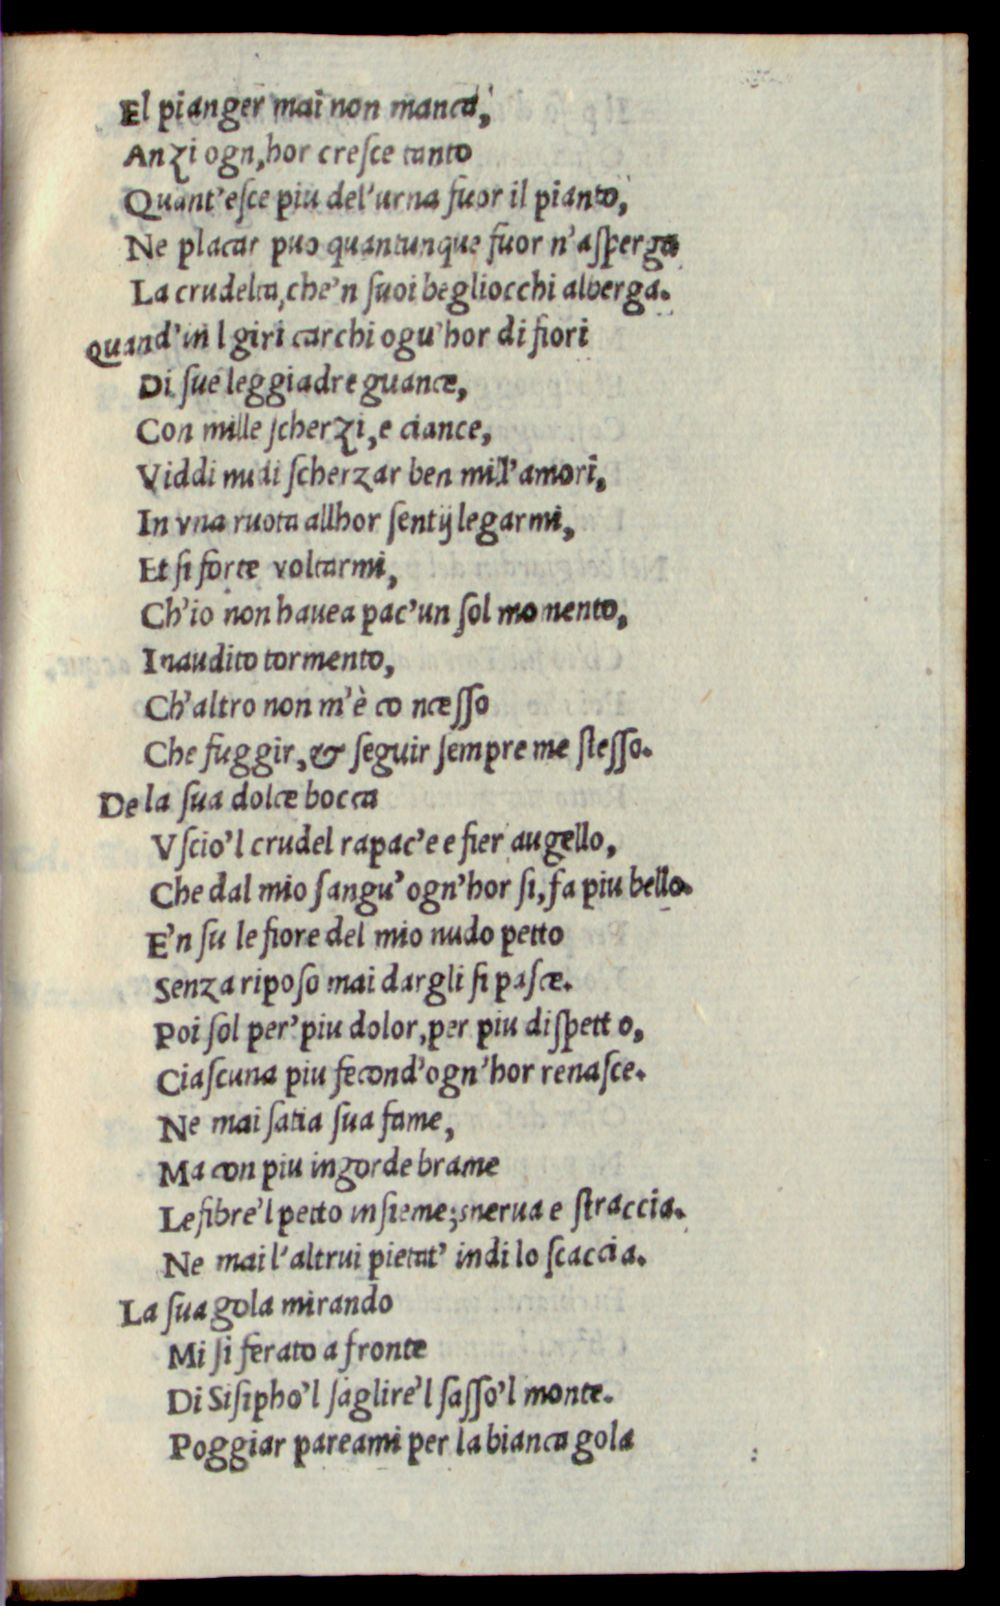 El pianger mai non manca,
Anzi ogn,hor cresce tanto
Quant'esce piu del'urna fuor il pianto,
Ne placar puo quantunque fuor n'asperga
La crudelta,che'n suoi begliocchi alberga.
Quand'in l giri carchi ogu'hor di fiori
Di sue leggiadre guance,
Con mille scherzi,e ciance,
Viddi nudi scherzar ben mill'amori,
In vna ruota allhor sentij legarmi,
Et si forte voltarmi,
Ch'io non hauea pac'un sol momento,
Inaudito tormento,
Ch'altro non m'è concesso
Che fuggir,& seguir sempre me stesso.
De la sua dolce bocca
Vscio'l crudel rapac'e e fier augello,
Che dal mio sangu' ogn'hor si,fa piu bello.
E'n su le fiore del mio nudo petto
Senza riposo mai dargli si pasce.
Poi sol per'piu dolor,per piu dispetto,
Ciascuna piu fecond'ogn'hor renasce.
Ne mai satia sua fame,
Ma con piu ingorde brame
Le fibre'l petto insieme;snerua e straccia.
Ne mai l'altrui pietat' indi lo scaccia.
La sua gola mirando
Mi si ferato a fronte
Di Sisipho'l saglire'l sasso'l monte.
Poggiar pareami per la bianca gola